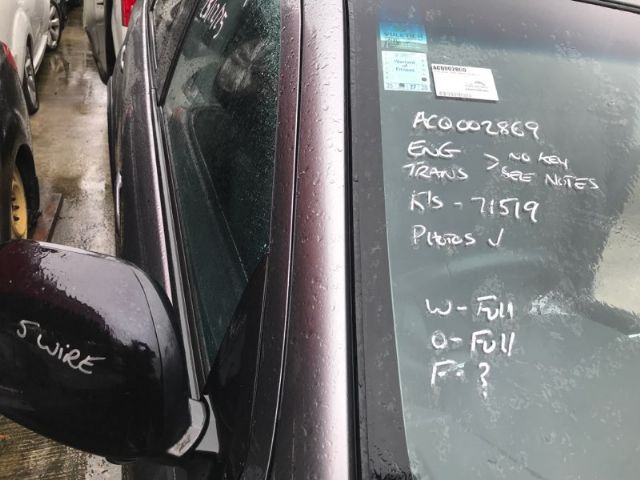 Warrant
of
Fitness
AC0002869
ENG > NO KEY
TRANS SEE NOTES
K's - 71519
PHOTOS ✓
W - Full
O - Full
F - ?
5 WIRE